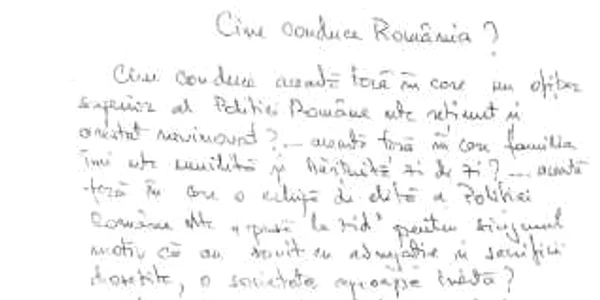 Cine conduce România?
Cine conduce această țară în care un ofițer
superior al Poliției Române este reținut și
arestat nevinovat?... această țară în care familia
îmi este umilită și hărțuită zi de zi?... această
țară în care o echipă de elită a Poliției
Române este "pusă la zid" pentru singurul
motiv că au servit cu abnegație și sacrificii
o societate aproape inertă?